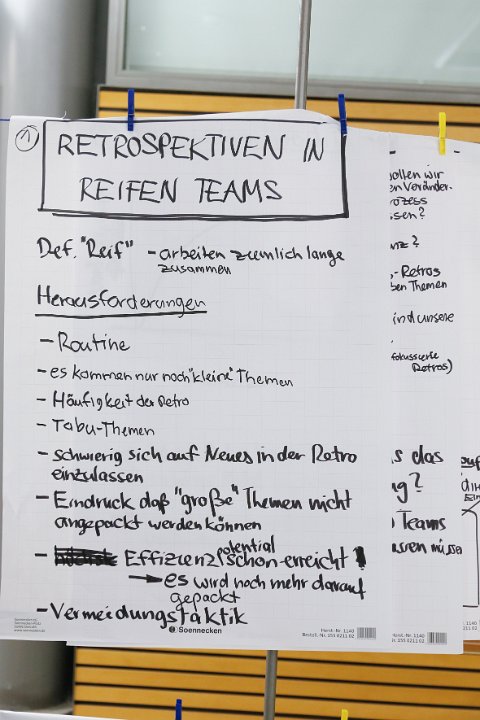 1
RETROSPEKTIVEN IN
REIFEN TEAMS
Def. "Reif" - arbeiten ziemlich lange
zusammen
Herausforderungen
- Routine
- es kommen nur noch "kleine" Themen
- Häufigkeit der Retro
- Tabu-Themen
- schwierig sich auf Neues in der Retro
einzulassen
- Eindruck daß "große" Themen nicht
angepackt werden können
- Effizienzpotential schon erreicht
→ es wird noch mehr darauf
gepackt
- Vermeidungstaktik
Soennecken
www.soennecken.de
Horst.-Nr. 1140
Bestell.-Nr. 155 0211 02
wir
Retros
Themen
ind unsere
fokussierte
Retros)
das
?
Teams
müssen
155 0211 02